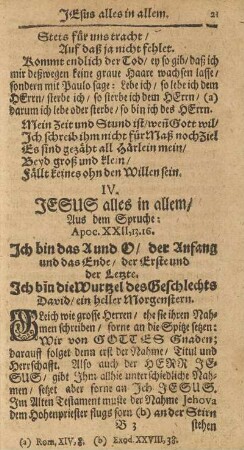 JEsus alles in allem. 21
Stets für uns tracht/
Auf daß ja nicht fehlet.
Kommt endlich der Tod/ ey so gib/ daß ich
mir deßwegen keine graue Haare wachsen lasse/
sondern mit Paulo sage: Lebe ich/ so lebe ich dem
HErrn/ sterbe ich/ so sterbe ich dem HErrn/ (a)
darum ich lebe oder sterbe/ so bin ich des HErrn.
Mein Zeit und Stund ist/ weñ Gott wil/
Ich schreib ihm nicht für Maß noch Ziel
Es sind gezäht all Härlein mein/
Beyd groß und klein/
Fällt keines ohn den Willen sein.
IV.
JESUS alles in allem/
Aus dem Spruche:
Apoc. XXII, 13. 16.
Ich bin das A und O/ der Anfang
und das Ende/ der Erste und
der Letzte.
Ich bin die Wurtzel des Geschlechts
David/ ein heller Morgenstern.
Gleich wie grosse Herren/ the sie ihren Nah-
men schreiben/ forne an die Spitze setzen:
Wir von GOTTES Gnaden;
darauff folget denn erst der Nahme/ Titul und
Herrschafft. Also auch der HERR JE-
SUS/ gibt Ihm allhie unterschiedliche Nah-
men/ setzet aber forne an Ich JESUS.
Im Alten Testament muste der Nahme Jehova
dem Hohenpriester flugs forn (b) an der Stirn
B 3 stehen
(a) Rom, XIV, 8. (b) Exod. XXVIII, 38.